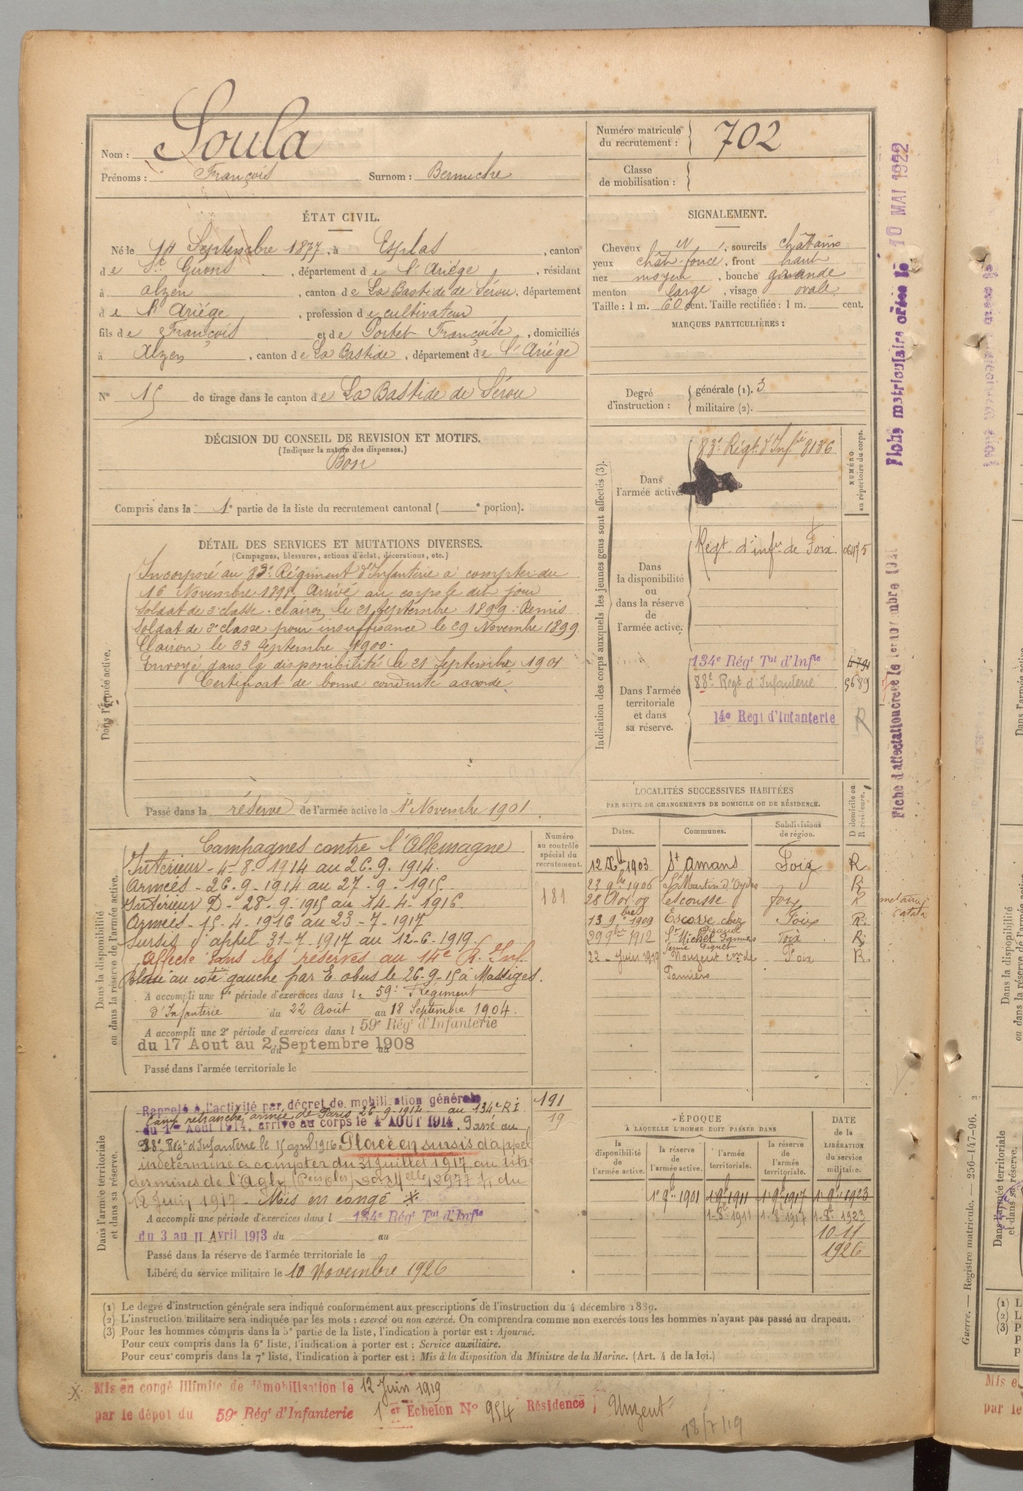 Nom : Soula
Prénoms : François Surnom : Berniche
Numéro matricule du recrutement : 702
Classe de mobilisation :
ÉTAT CIVIL.
Né le 14 Septembre 1877, à Esplas, canton
de St Girons, département de l'Ariége, résidant
à Alzen, canton de La Bastide de Sérou, département
de l'Ariége, profession de cultivateur
fils de François et de Portet Françoise, domiciliés
à Alzen, canton de La Bastide, département de l'Ariége
N° 15 de tirage dans le canton de La Bastide de Sérou
SIGNALEMENT.
Cheveux et sourcils châtains
yeux chât. foncé, front haut
nez moyen, bouche grande
menton large, visage ovale
Taille : 1 m. 60 cent. Taille rectifiée : 1 m. cent.
MARQUES PARTICULIÈRES :
Degré d'instruction : générale (1). 3
militaire (2).
DÉCISION DU CONSEIL DE REVISION ET MOTIFS.
(Indiquer la nature des dispenses.)
Bon
Compris dans la 1e partie de la liste du recrutement cantonal ( e portion).
DÉTAIL DES SERVICES ET MUTATIONS DIVERSES.
(Campagnes, blessures, actions d'éclat, décorations, etc.)
Dans l'armée active.
Incorporé au 83e Régiment d'Infanterie à compter du
16 Novembre 1898. Arrivé au corps le dit jour
Soldat de 2e classe. Clairon le 21 Septembre 1899. Remis
Soldat de 2e classe pour insuffisance le 29 Novembre 1899
Clairon le 23 Septembre 1900.
Envoyé dans la disponibilité le 21 Septembre 1901
Certificat de bonne conduite accordé
Passé dans la réserve de l'armée active le 1er Novembre 1901.
Indication des corps auxquels les jeunes gens sont affectés (3).
NUMÉRO au répertoire du corps.
Dans l'armée active
83e Régt d'Infie 8186
Dans la disponibilité ou dans la réserve de l'armée active.
Régt d'infie de Foix
Dans l'armée territoriale et dans sa réserve.
134e Régt Tal d'Infie
88e Régt d'Infanterie 5689
14e Régt d'Infanterie R
Dans la disponibilité ou dans la réserve de l'armée active.
Campagnes contre l'Allemagne
Intérieur - 4-8-1914 au 26.9.1914.
Armées - 26.9-1914 au 27-9-1915.
Intérieur D - 28.9-1915 au 14.4-1916.
Armées - 15.4-1916 au 23-7-1917.
Sursis d'appel 31-7-1917 au 12-6-1919
Affecté dans les réserves au 14e R. Inf.
Blessé au côté gauche par E. obus le 26.9.15 à Massiges.
A accompli une 1re période d'exercices dans le 59e Régiment
d'Infanterie du 22 Août au 18 Septembre 1904.
A accompli une 2e période d'exercices dans l 59e Régt d'Infanterie
du 17 Aout au 2 Septembre 1908
Passé dans l'armée territoriale le
Numéro au contrôle spécial du recrutement.
181
LOCALITÉS SUCCESSIVES HABITÉES
PAR SUITE DE CHANGEMENTS DE DOMICILE OU DE RÉSIDENCE.
Dates. Communes. Subdivisions de région. D domicile ou R résidence.
12 Xbre 1903 St Amans Foix R
23 9bre 1906 St Martin d'Oydes R
Escosse Foix R
13 9bre 1909 Escosse chez Foix R
29 9bre 1912 St Michel Foix R
22 Juin 1913 Foix R
Pamiers
Dans l'armée territoriale et dans sa réserve.
Rappelé à l'activité par décret de mobilisation générale
Camp retranché armée de Paris 26-9-1914 au 134e R I
du 1er Août 1914, arrivé au corps le 4 AOUT 1914. Passé au
88e Régt d'Infanterie le 15 avril 1916 Placé en sursis d'appel
indéterminé à compter du 31 juillet 1917 au titre
des mines de l'Agly
12 Juin 1917 - Mis en congé *
A accompli une période d'exercices dans l 134e Régt Tal d'Infie
du 3 au 11 Avril 1913 du au
Passé dans la réserve de l'armée territoriale le
Libéré du service militaire le 10 Novembre 1926
191
19
ÉPOQUE
A LAQUELLE L'HOMME DOIT PASSER DANS
la disponibilité de l'armée active. la réserve de l'armée active. l'armée territoriale. la réserve de l'armée territoriale.
DATE de la LIBÉRATION du service militaire.
1er 9bre 1901 1er 9bre 1911 1er 9bre 1917 1er 9bre 1923
10-11
1926
(1) Le degré d'instruction générale sera indiqué conformément aux prescriptions de l'instruction du 4 décembre 1889.
(2) L'instruction militaire sera indiquée par les mots : exercé ou non exercé. On comprendra comme non exercés tous les hommes n'ayant pas passé au drapeau.
(3) Pour les hommes compris dans la 5e partie de la liste, l'indication à porter est : Ajourné.
Pour ceux compris dans la 6e liste, l'indication à porter est : Service auxiliaire.
Pour ceux compris dans la 7e liste, l'indication à porter est : Mis à la disposition du Ministre de la Marine. (Art. 4 de la loi.)
* Mis en congé illimité de démobilisation le 12 Juin 1919
par le dépôt du 59e Régt d'Infanterie 1er Echelon N° 954 Résidence : Unzent
18/7/19
Fiche matriculaire créée le 10 MAI 1922
Guerre. — Registre matricule. — 256-147-96.